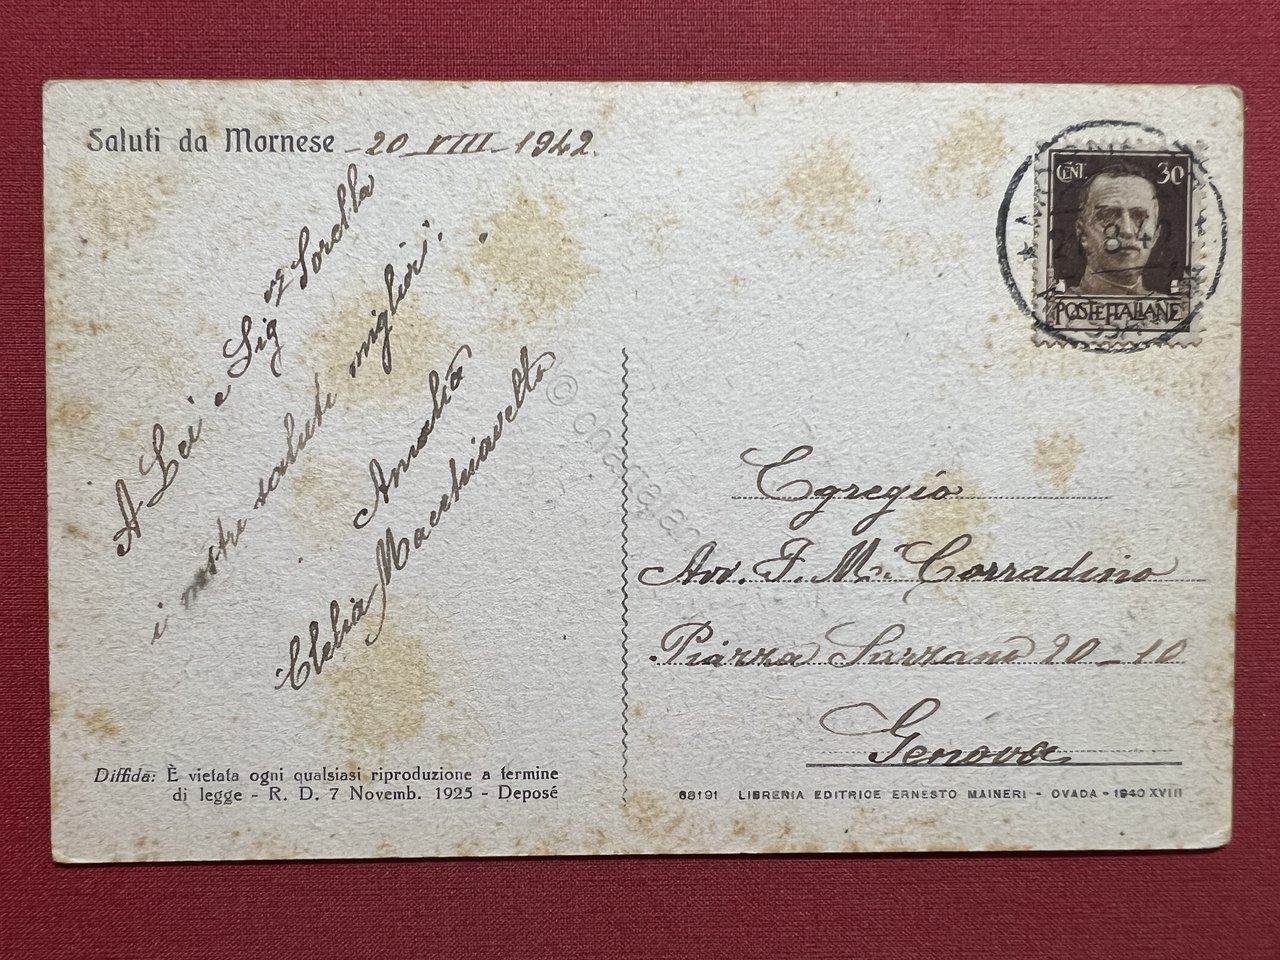 Saluti da Mornese - 20 VIII - 1942.
A Lei e Sig.na Sorella
i nostri saluti migliori.
Amalia
Clelia Macchiavello
CENT. 30
POSTE ITALIANE
Egregio
Avv. F. M. Corradino
Piazza Sarzano 20-10
Genova
Diffida: È vietata ogni qualsiasi riproduzione a termine
di legge - R. D. 7 Novemb. 1925 - Deposé
68191 LIBRERIA EDITRICE ERNESTO MAINERI - OVADA - 1940 XVIII